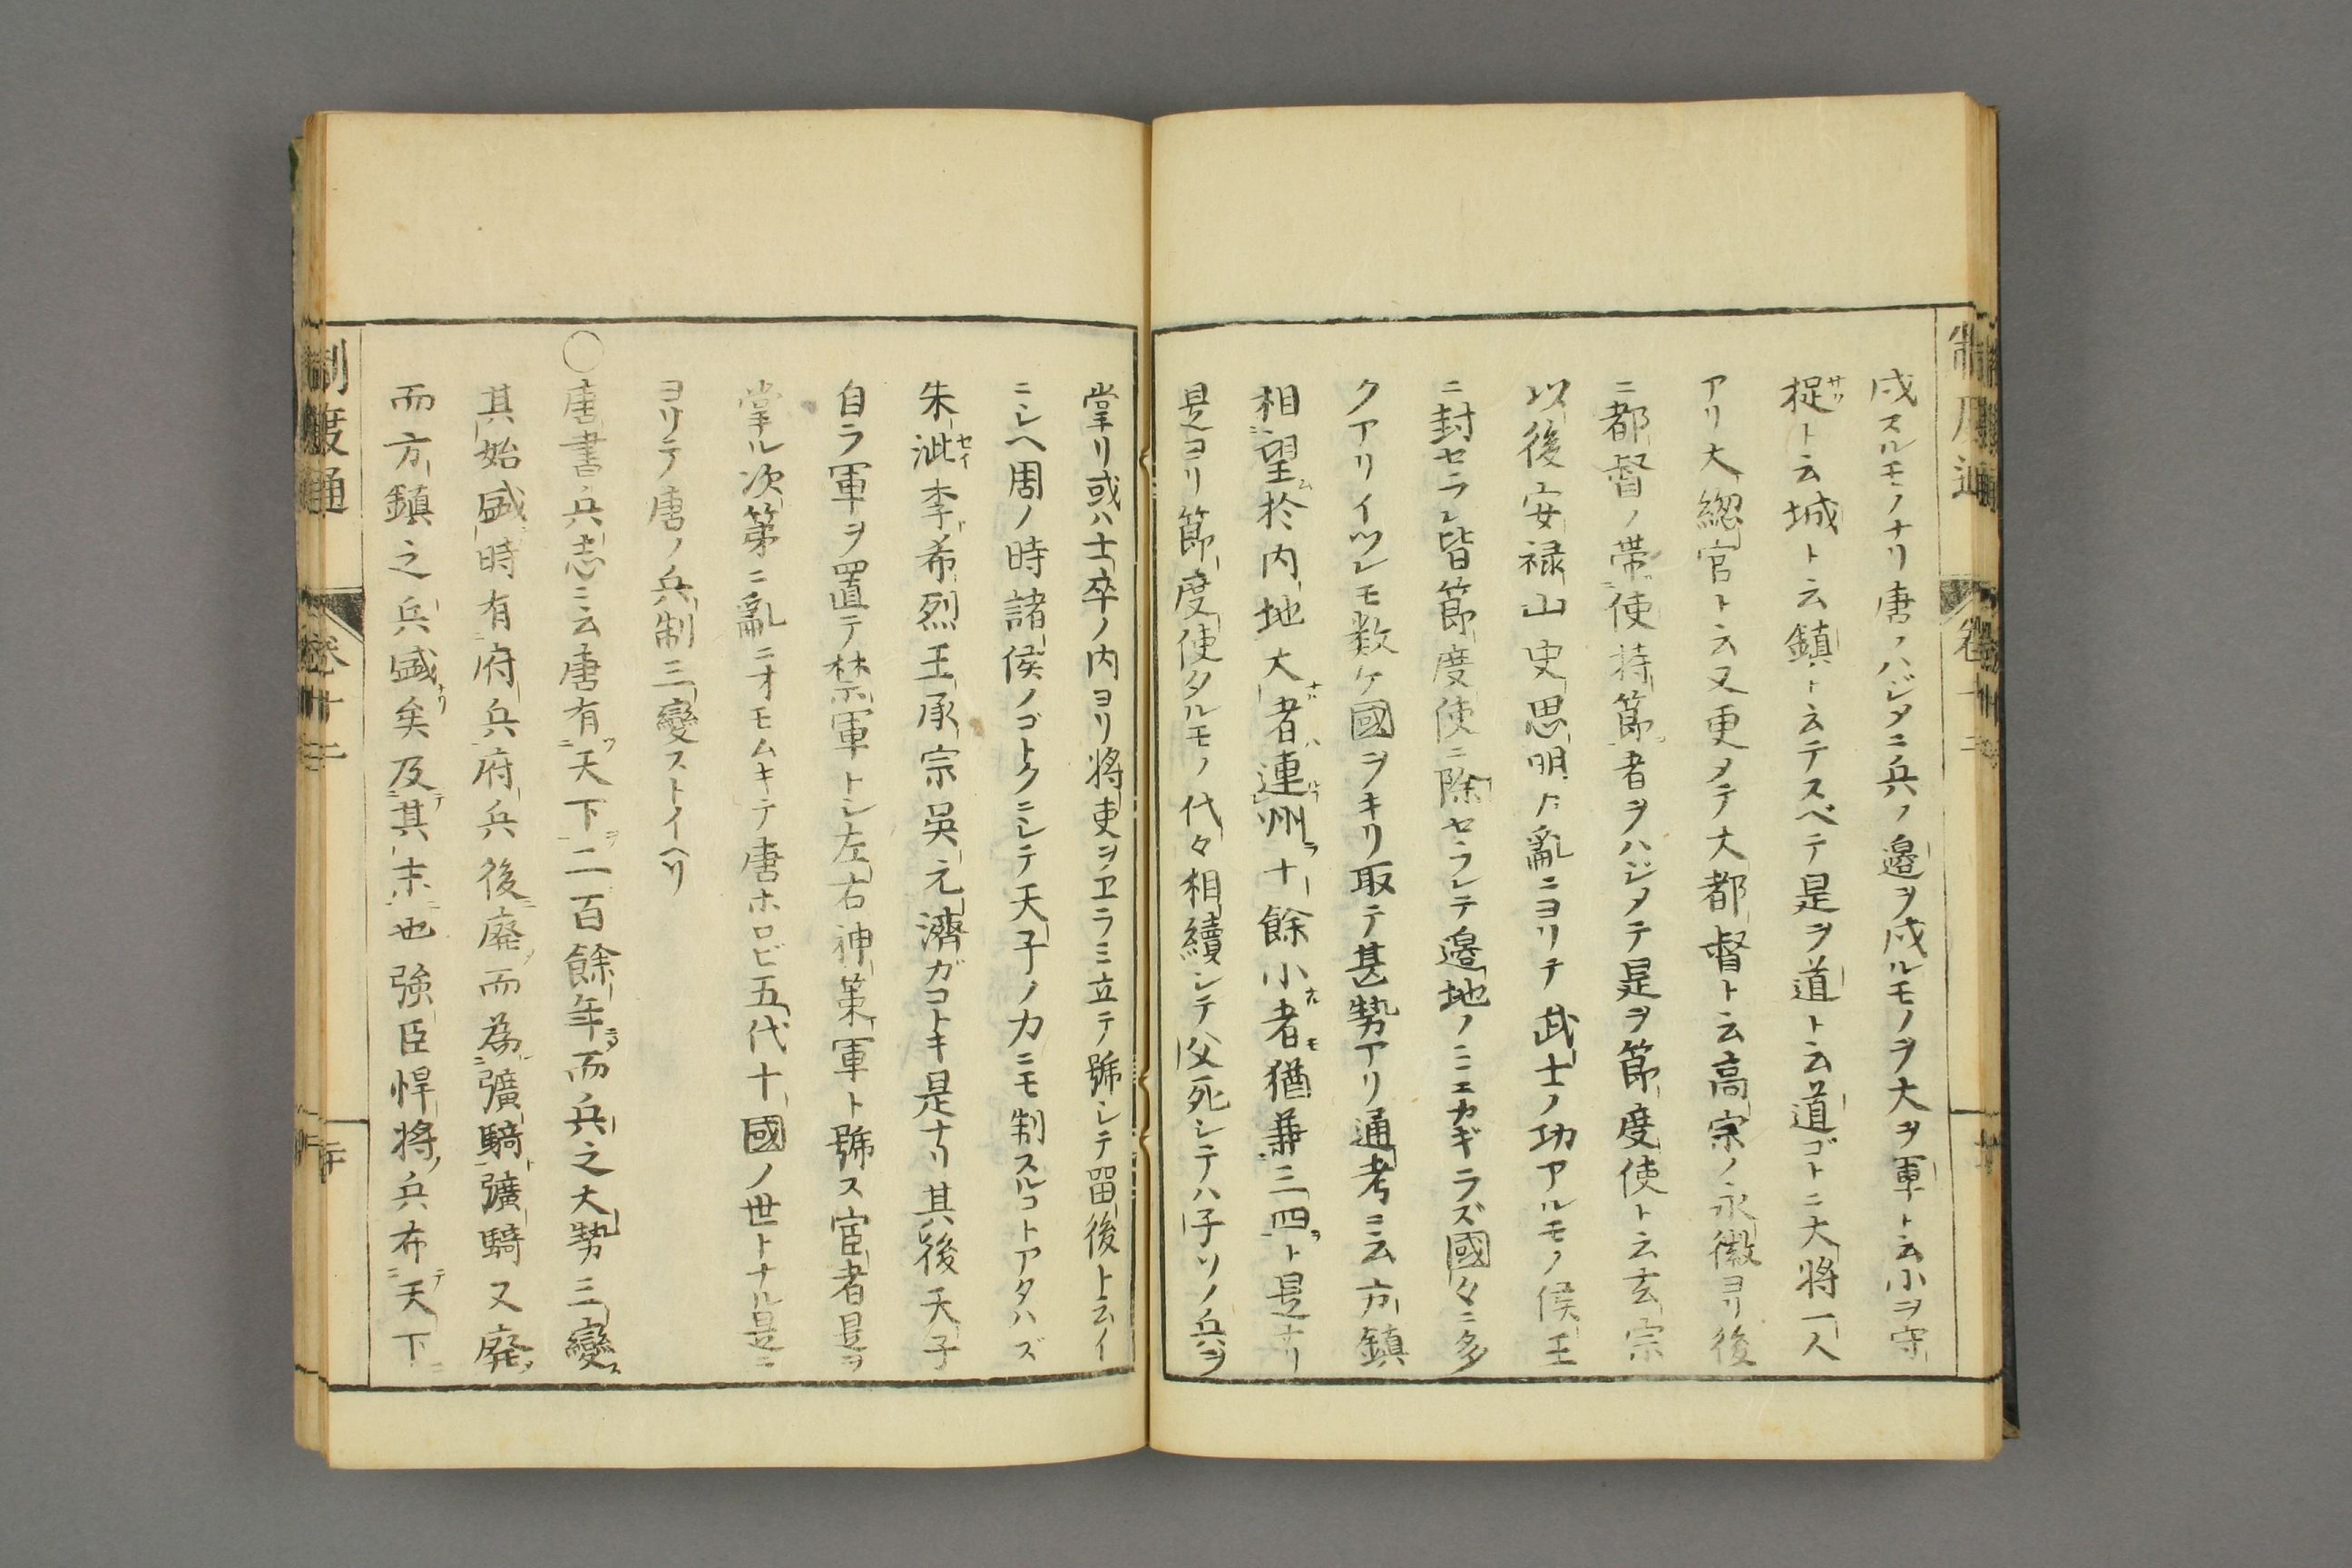 戍スルモノナリ唐ノハジメニ兵ノ邊ヲ戍ルモノヲ大ヲ軍ト云小ヲ守
捉ト云城ト云鎮ト云テスベテ是ヲ道ト云道ゴトニ大將一人
アリ大總官ト云又更メテ大都督ト云高宗ノ永徽ヨリ後
ニ都督ノ帯使持節者ヲハジメテ是ヲ節度使ト云玄宗
以後安禄山史思明ガ亂ニヨリテ武士ノ功アルモノ侯王
ニ封セラレ皆節度使ニ除セラレテ邊地ノミニカギラズ國々ニ多
クアリイツレモ数ケ國ヲキリ取テ甚勢アリ通考ニ云方鎮
相望於内地大者連州十餘小者猶兼三四ト是ナリ
是ヨリ節度使タルモノ代々相續シテ父死シテハ子ソノ兵ヲ
掌リ或ハ士卒ノ内ヨリ將吏ヲヱラミ立テ號シテ留後ト云イ
ニシヘ周ノ時諸侯ノゴトクニシテ天子ノ力ニモ制スルコトアタハズ
朱泚李希烈王承宗吳元濟ガコトキ是ナリ其後天子
自ラ軍ヲ置テ禁軍トシ左右神策軍ト號ス宦者是ヲ
掌ル次第ニ亂ニオモムキテ唐ホロビ五代十國ノ世トナル是ニ
ヨリテ唐ノ兵制三變ストイヘリ
○唐書兵志ニ云唐有天下二百餘年而兵之大勢三變
其始盛時有府兵府兵後廢而為彍騎彍騎又廢
而方鎮之兵盛矣及其末也強臣悍將兵布天下
制度通
卷十二